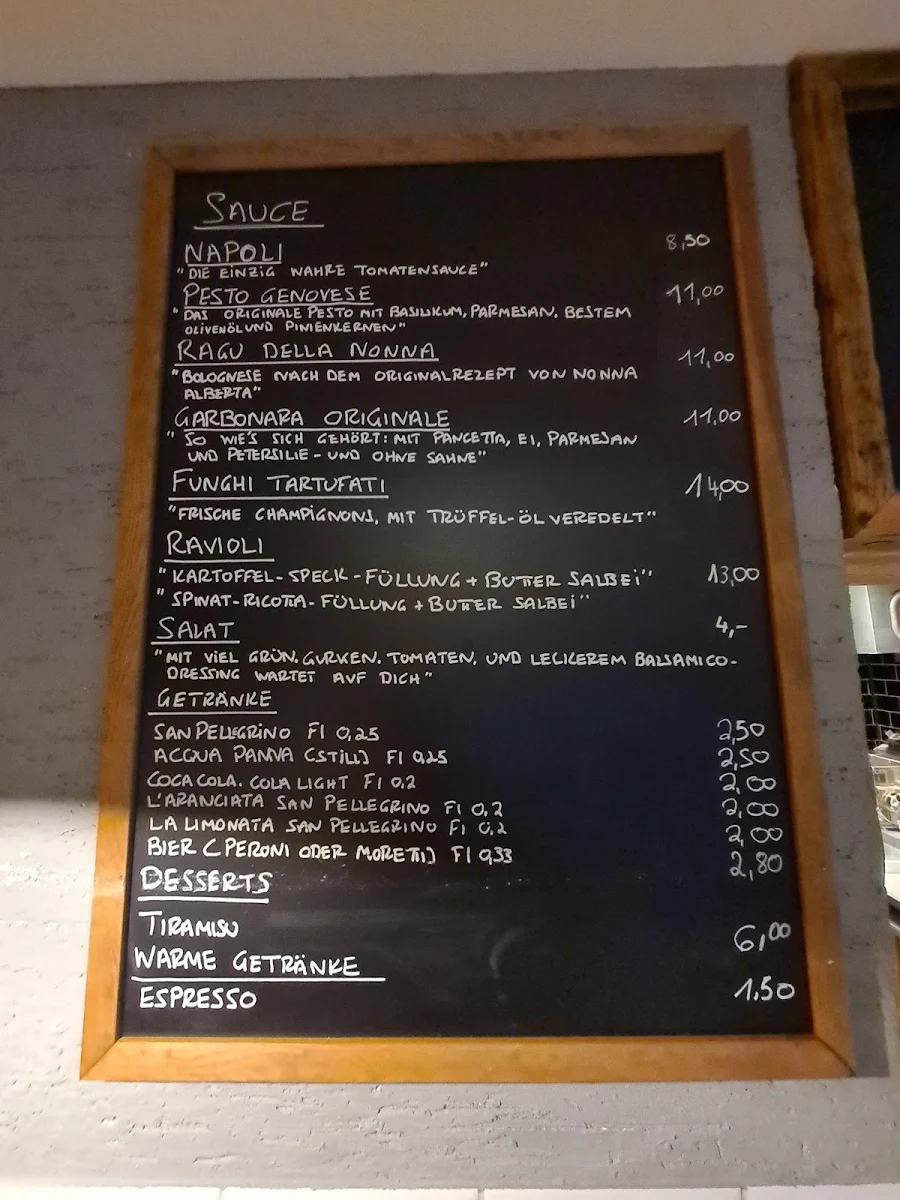 SAUCE
NAPOLI 8,50
"DIE EINZIG WAHRE TOMATENSAUCE"
PESTO GENOVESE 11,00
"DAS ORIGINALE PESTO MIT BASILIKUM, PARMESAN. BESTEM
OLIVENÖL UND PINIENKERNEN"
RAGU DELLA NONNA 11,00
"BOLOGNESE NACH DEM ORIGINALREZEPT VON NONNA
ALBERTA"
CARBONARA ORIGINALE 11,00
"SO WIE'S SICH GEHÖRT: MIT PANCETTA, EI, PARMESAN
UND PETERSILIE - UND OHNE SAHNE"
FUNGHI TARTUFATI 14,00
"FRISCHE CHAMPIGNONS, MIT TRÜFFEL-ÖL VEREDELT"
RAVIOLI
"KARTOFFEL-SPECK-FÜLLUNG + BUTTER SALBEI" 13,00
"SPINAT-RICOTTA-FÜLLUNG + BUTTER SALBEI"
SALAT 4,-
"MIT VIEL GRÜN. GURKEN. TOMATEN. UND LECKEREM BALSAMICO-
DRESSING WARTET AUF DICH"
GETRÄNKE
SAN PELLEGRINO Fl 0,25 2,50
ACQUA PANNA (STILL) Fl 0,25 2,50
COCA COLA. COLA LIGHT Fl 0,2 2,00
L'ARANCIATA SAN PELLEGRINO Fl 0,2 2,00
LA LIMONATA SAN PELLEGRINO Fl 0,2 2,00
BIER (PERONI ODER MORETTI) Fl 0,33 2,80
DESSERTS
TIRAMISU 6,00
WARME GETRÄNKE
ESPRESSO 1.50